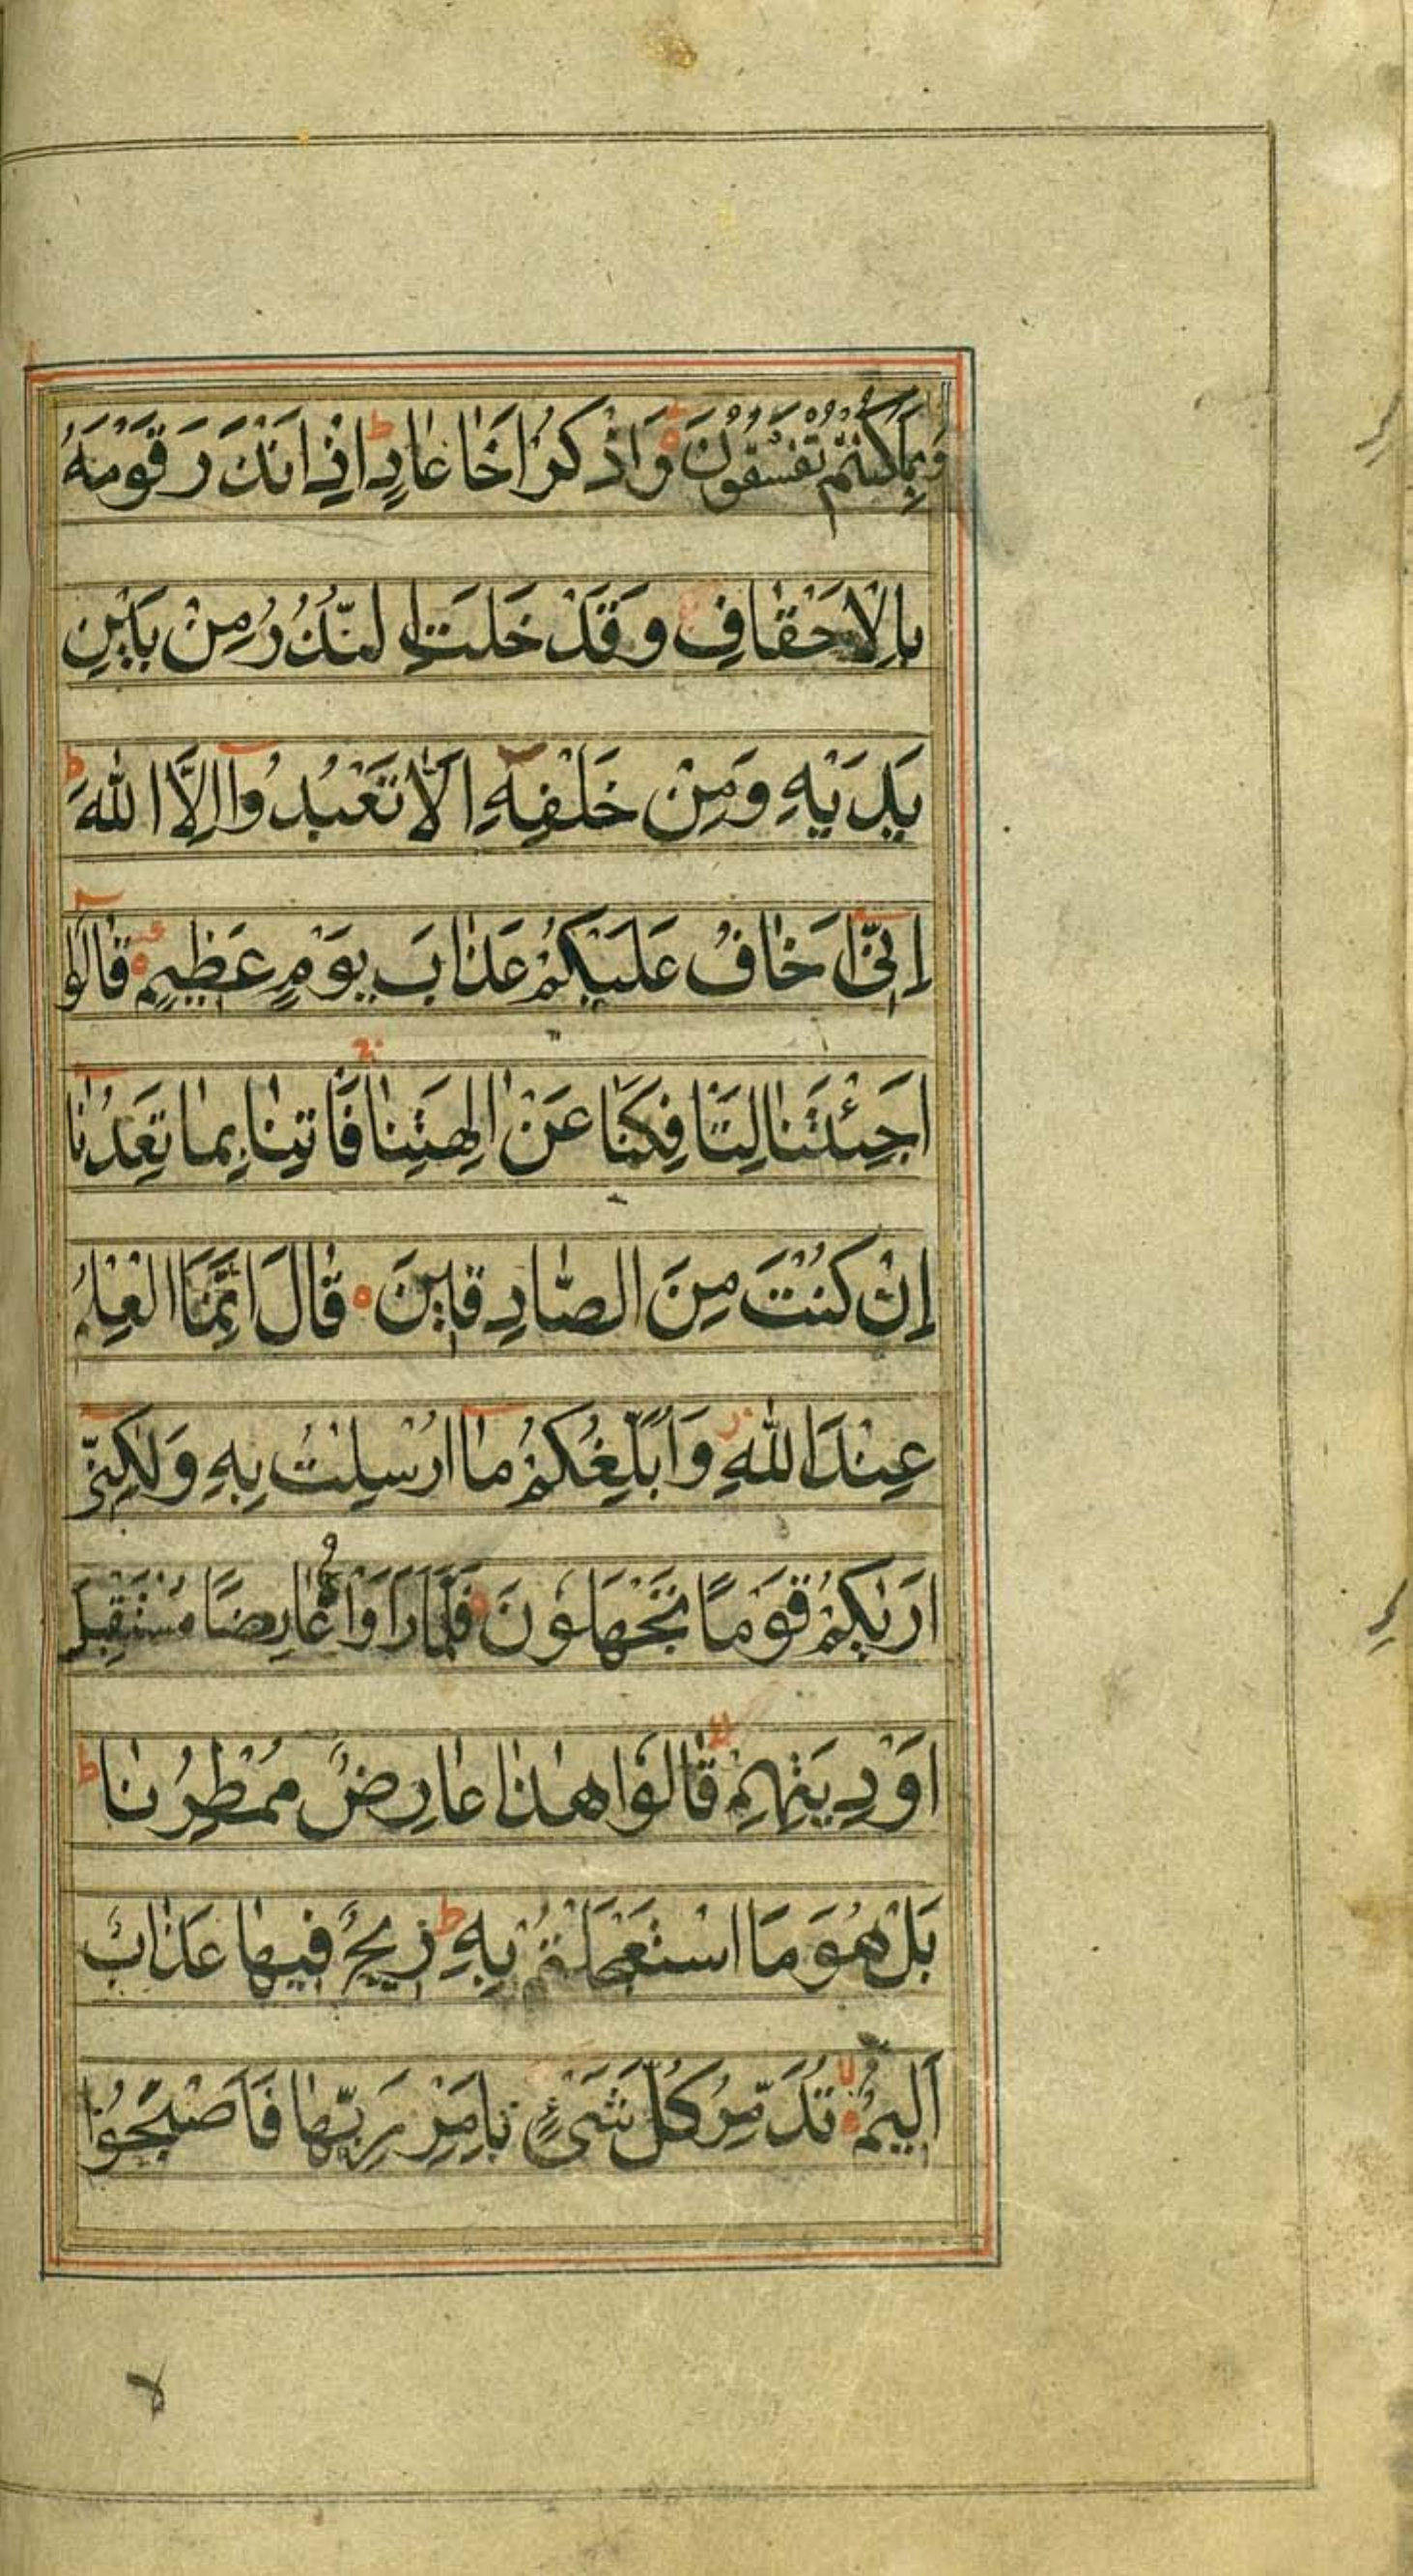 وَبِمَا كُنْتُمْ تَفْسُقُوْنَ وَاذْكُرْ اَخَا عَادٍ ط اِذْ اَنْذَرَ قَوْمَهُ
بِالْاَحْقَافِ وَقَدْ خَلَتِ النُّذُرُ مِنْ بَيْنِ
يَدَيْهِ وَمِنْ خَلْفِهِ اَلَّا تَعْبُدُوٓا اِلَّا اللهَ ط
اِنِّيٓ اَخَافُ عَلَيْكُمْ عَذَابَ يَوْمٍ عَظِيْمٍ قَالُوٓا
اَجِئْتَنَا لِتَافِكَنَا عَنْ اٰلِهَتِنَا فَاْتِنَا بِمَا تَعِدُنَآ
اِنْ كُنْتَ مِنَ الصَّادِقِيْنَ قَالَ اِنَّمَا الْعِلْمُ
عِنْدَ اللهِ وَاُبَلِّغُكُمْ مَآ اُرْسِلْتُ بِهِ وَلٰكِنِّيٓ
اَرٰىكُمْ قَوْمًا تَجْهَلُوْنَ فَلَمَّا رَاَوْهُ عَارِضًا مُسْتَقْبِلَ
اَوْدِيَتِهِمْ لا قَالُوْا هٰذَا عَارِضٌ مُمْطِرُنَا ط
بَلْ هُوَ مَا اسْتَعْجَلْتُمْ بِهِ ط رِيْحٌ فِيْهَا عَذَابٌ
اَلِيْمٌ لا تُدَمِّرُ كُلَّ شَيْءٍ بِاَمْرِ رَبِّهَا فَاَصْبَحُوْا
لا